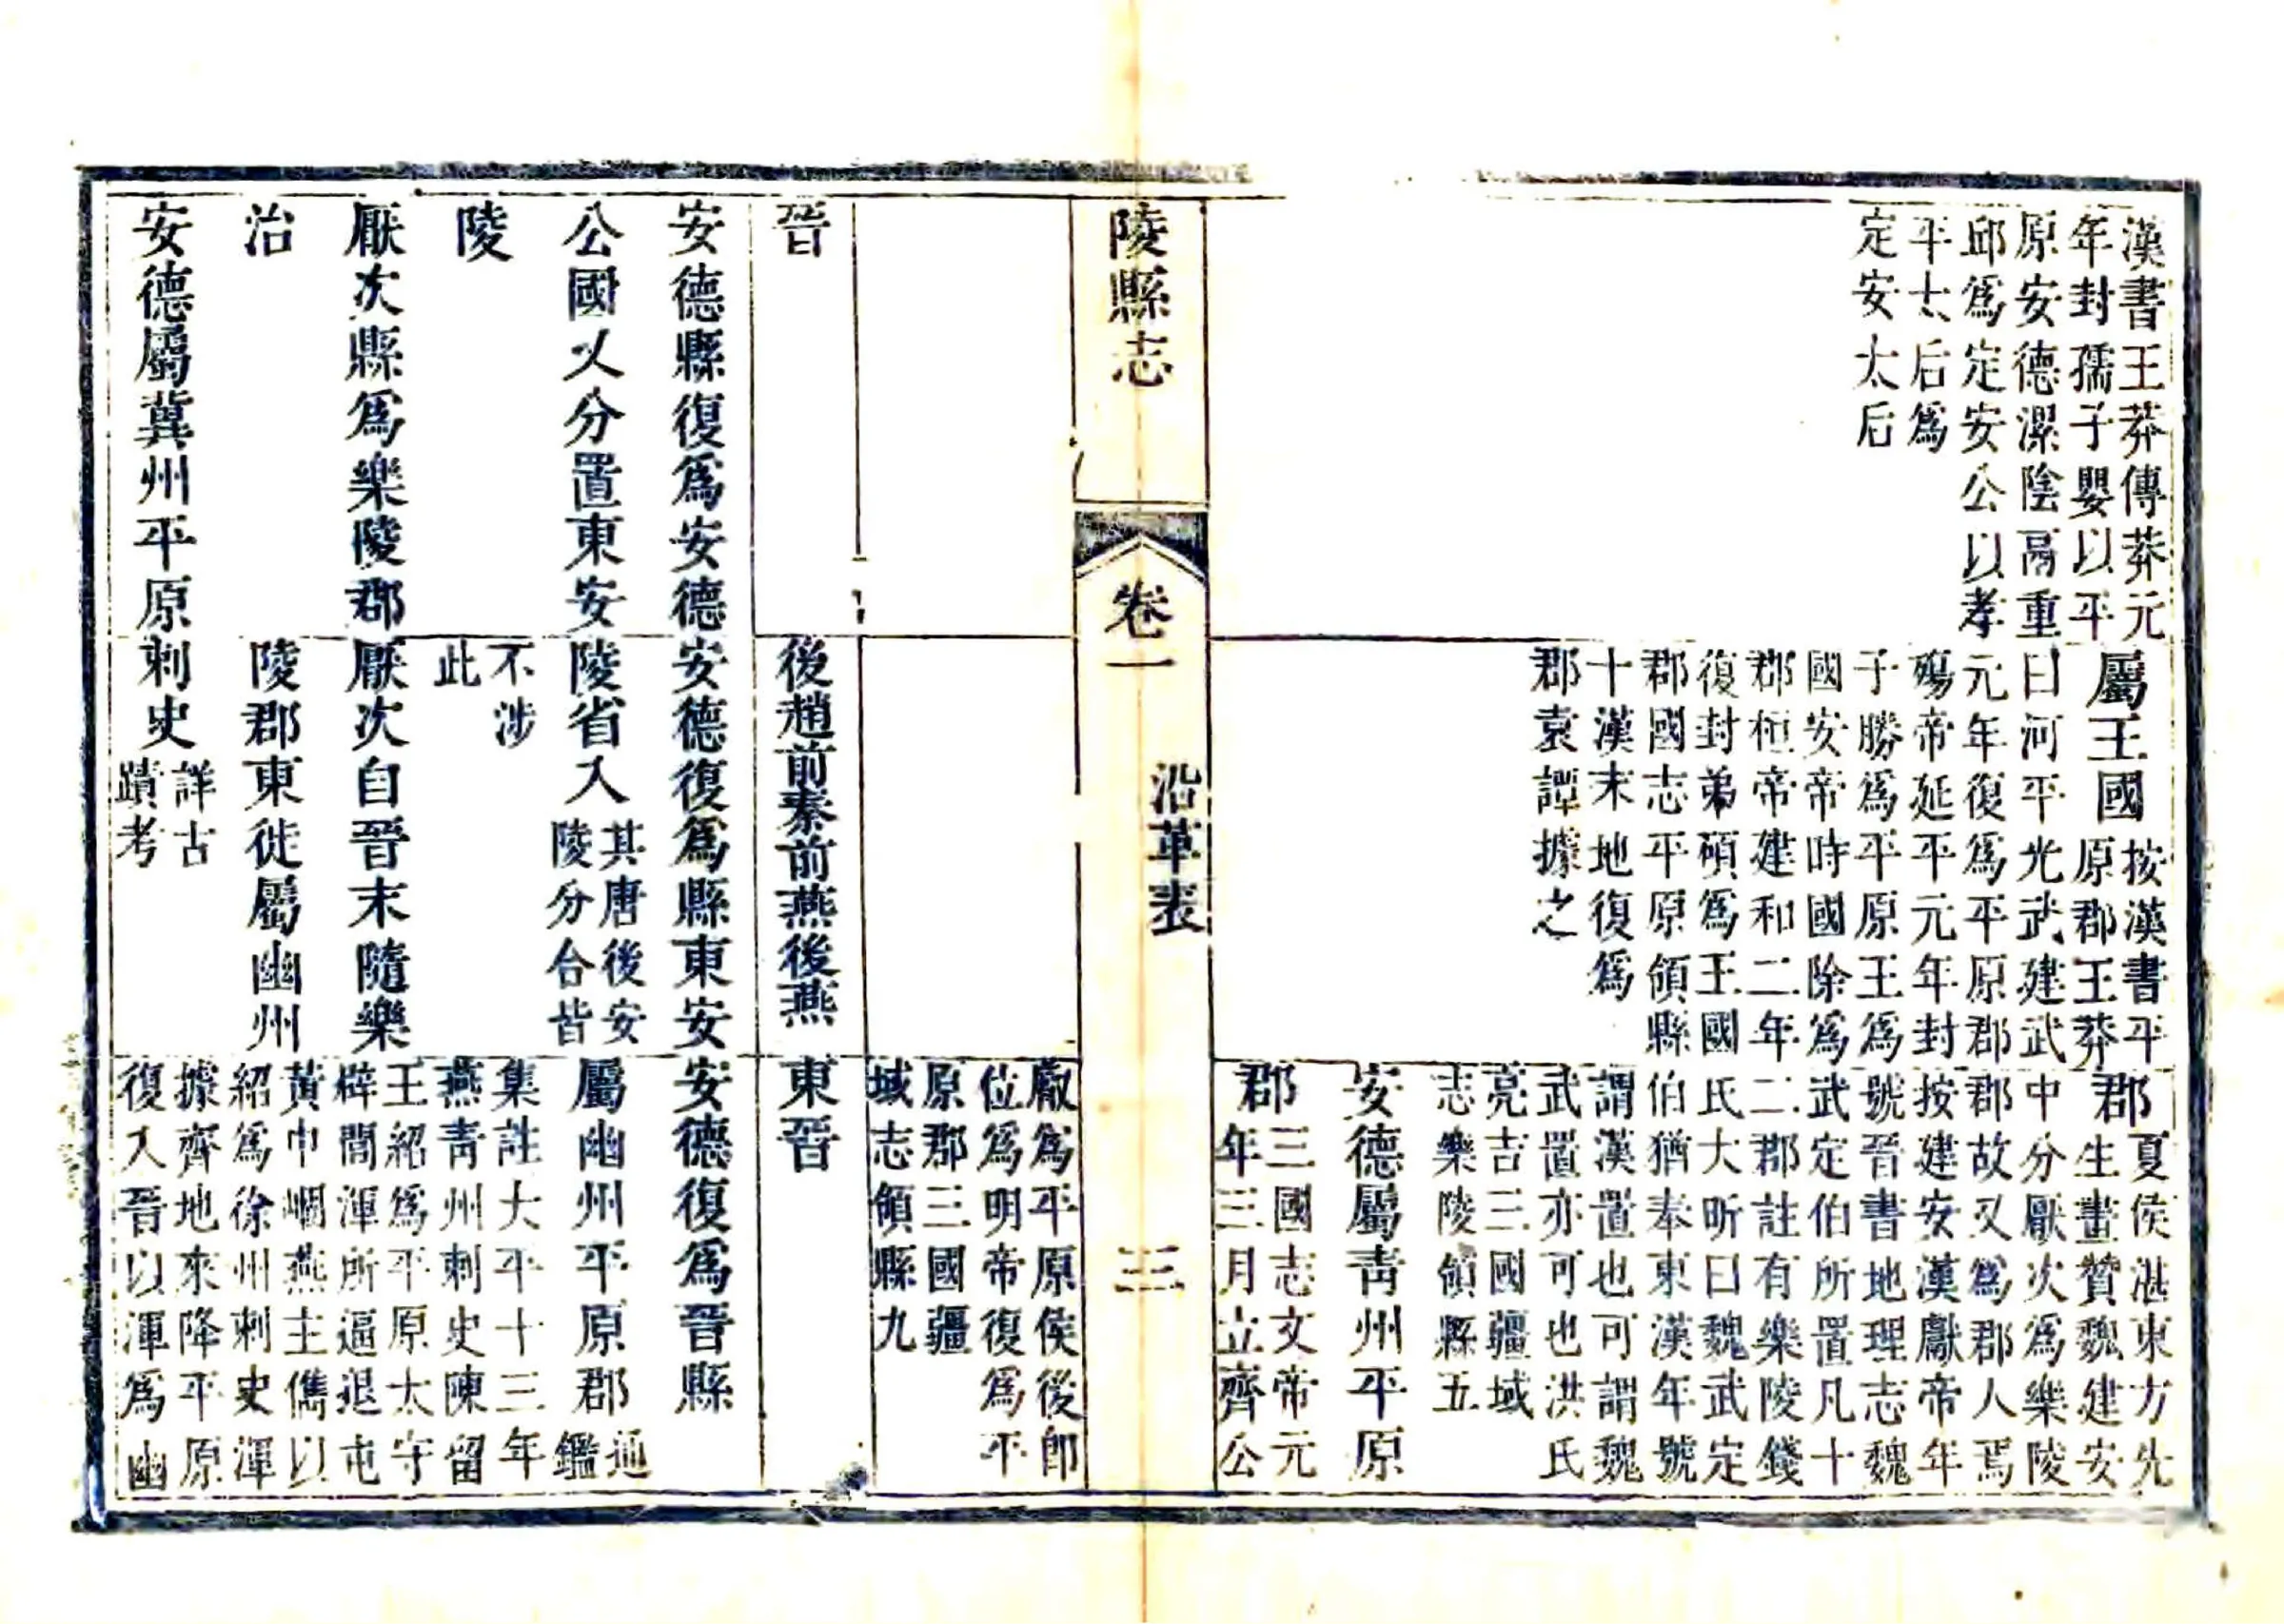 漢書王莽傳莽元
年封孺子嬰以平
原安德漯陰鬲重
邱爲定安公以孝
平太后爲
定安太后
屬王國按漢書平
原郡王莽
曰河平光武建武
元年復爲平原郡
殤帝延平元年封
子勝爲平原王爲
國安帝時國除爲
郡桓帝建和二年
復封弟碩爲王國
郡國志平原領縣
十漢末地復爲
郡袁譚據之
郡夏侯湛東方先
生畫贊魏建安
中分厭次爲樂陵
郡故又爲郡人焉
按建安漢獻帝年
號晉書地理志魏
武定伯所置凡十
二郡註有樂陵錢
氏大昕曰魏武定
伯猶奉東漢年號
謂漢置也可謂魏
武置亦可也洪氏
亮吉三國疆域
志樂陵領縣五
安德屬青州平原
郡三國志文帝元
年三月立齊公
陵縣志
卷一
沿革表
三
叡爲平原侯後即
位爲明帝復爲平
原郡三國疆
域志領縣九
晉
後趙前秦前燕後燕
東晉
安德縣復爲安德
公國又分置東安
陵
厭次縣爲樂陵郡
治
安德屬冀州平原
安德復爲縣東安
陵省入其唐後安
陵分合皆
不涉
此
厭次自晉末隨樂
陵郡東徙屬幽州
刺史詳古
蹟考
安德復爲晉縣
屬幽州平原郡通
鑑
集註大平十三年
燕青州刺史陳留
王紹爲平原太守
辟閭渾所逼退屯
黃巾崓燕主儁以
紹爲徐州刺史渾
據齊地來降平原
復入晉以渾爲幽